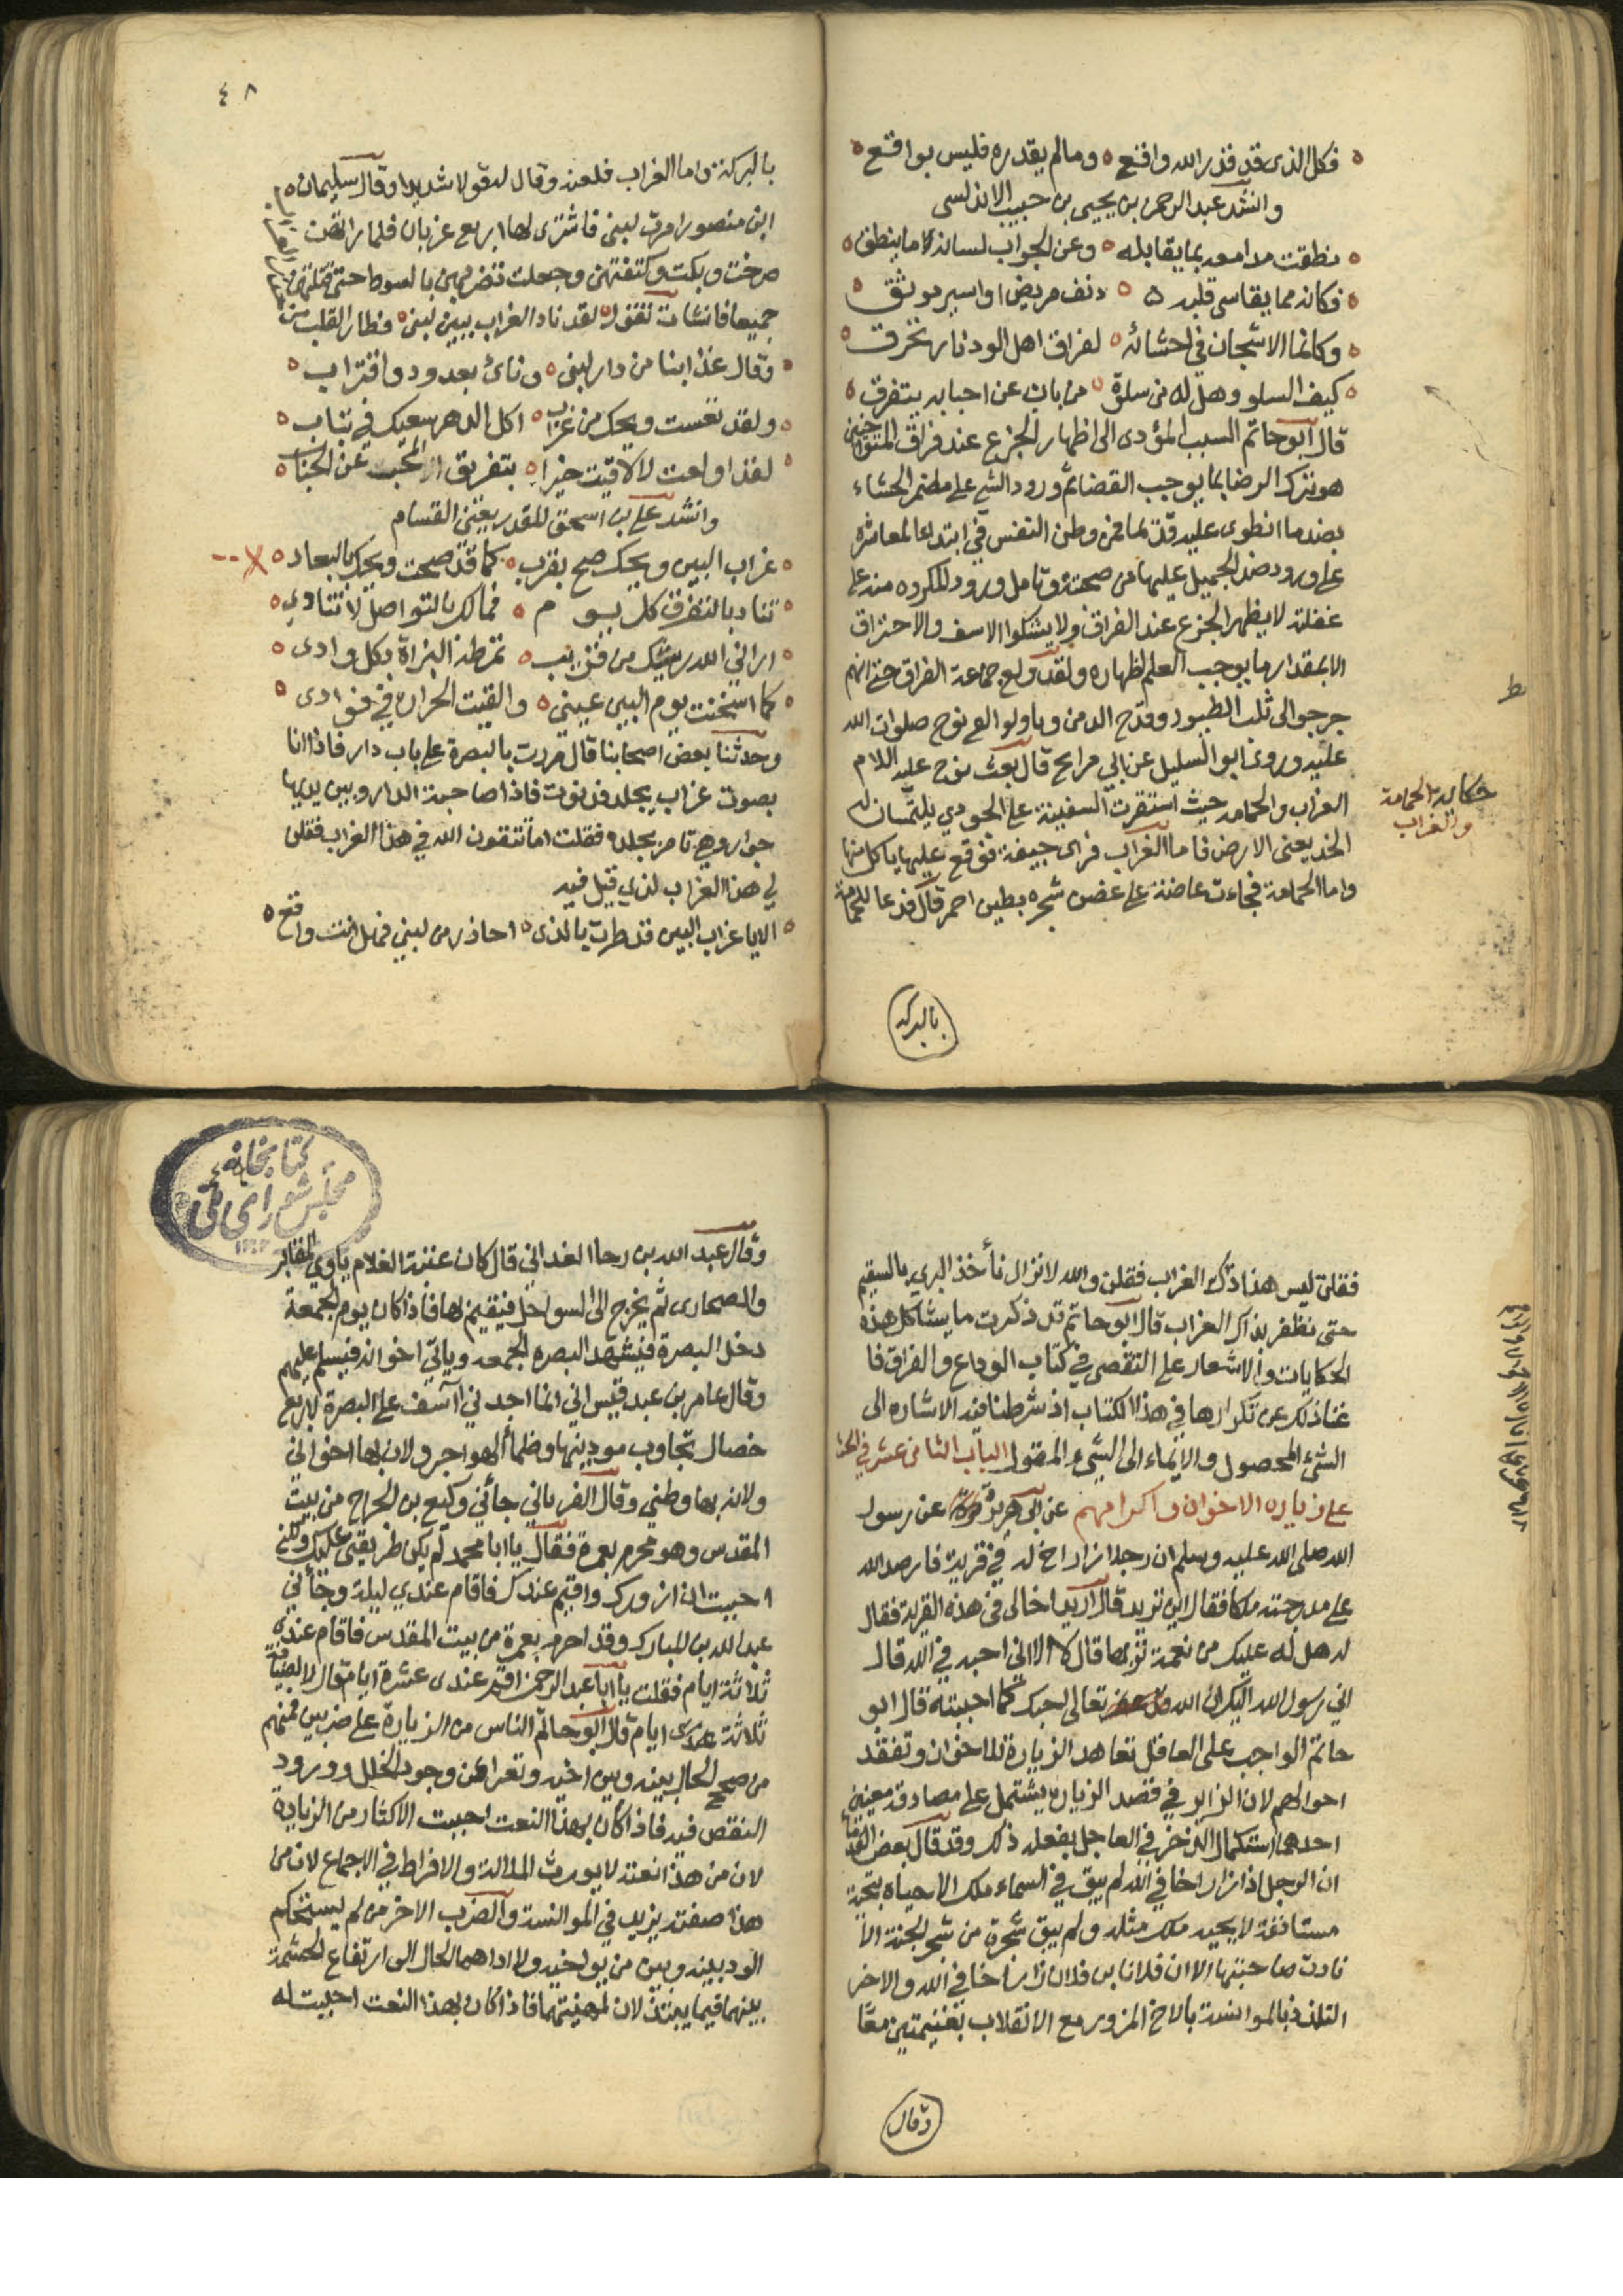 فكل الذي قد قدر الله واقع ه وما لم يقدره فليس بواقع
وانشد عبد الرحمن بن يحيى بن حبيب الاندلسي
نطقت مدامعه بما يقابله ه وعن الجواب لسانه لا ما ينطق
فكانه مما يقاسي قلبه ه دنف مريض او اسير موثق
وكانما الاشجان في احشائه ه لفراق اهل الود نار تحرق
كيف السلو وهل له من سلوة ه من بان عن احبابه يتفرق
قال ابو حاتم السبب المؤدى الى اظهار الجزع عند فراق المتواخين
هو ترك الرضا بما يوجب القضا ثم ورود الشي على مضمر الحشاء
بضد ما انطوى عليه قدما فمن وطن النفس في ابتدا المعاشرة
على ورود ضد الجميل عليها من صحبته وتامل ورود المكروه منه على
غفلته لا يظهر الجزع عند الفراق ولا يشكوا الاسف والاحتراق
الا بمقدار ما يوجب العلم اظهاره ولقد ولع جماعة الفراق حتى انهم
خرجوا الى ثلب الطيور وقدح الدمن وباولوا مع نوح صلوات الله
عليه وروى ابو السليل عن ابي مراح قال بعث نوح عليه اللام
الغراب والحمامه حيث استقرت السفينة على الجودي يلتمسان له
الخد يعني الارض فاما الغراب فراى جيفة فوقع عليها ياكل منها
واما الحمامة فجاءت عاضة على غضن شجره بطين احمر قال فدعا للحمامة
حكاية الحمامة
والغراب
بالبركه
٤٨
بالبركة واما الغراب فلعنه وقال له قولا شديدا وقال سليمان
ابن منصور امرت لبنى فاشترى لها اربع غربان فلما راتهن
صرخت وبكت وكتفتهن وجعلت تضربهن بالسوط حتى قتلتهن
جميعا فانشات تقول ه لقد نادا الغراب ببين لبنى ه فطار القلب من
وقال غدا ابنا من دار لبنى ه وناى بعد ود واقتراب
ولقد تعست ويحك من غراب ه اكل الدهر سعيك في تباب
لقد اولعت لا لاقيت خيرا ه بتفريق المحب عن الجناب
وانشد علي بن اسحق للمقدر يعني القسام
غراب البين ويحك صح بقرب ه كما قد صحت ويحك بالبعاد
تناد بالتفرق كل يـو م ه فمالك بالتواصل لا تنادي
اراني الله ريشك من قريب ه تمرطه البزاة بكل وادى
كما اسخنت يوم البين عيني ه والقيت الحراره في فوادى
وحدثنا بعض اصحابنا قال مررت بالبصرة على باب دار فاذا انا
بصوت غراب يجلد فدنوت فاذا صاحبة الدار وبين يديها
جوار وهي تامر بجلده فقلت اما تتقون الله في هذا الغراب فقلن
لي هذا الغراب لذي قيل فيه
الا يا غراب البين قد طرت بالذى ه احاذر من لبنى فهل انت واقع
فقلت ليس هذا ذاك الغراب فقلن والله لا نزال نأخذ البري بالسقيم
حتى نظفر بذاك الغراب قال ابو حاتم قد ذكرت ما يشاكل هذه
الحكايات والاشعار على التقصي في كتاب الوداع والفراق فا
غنا ذلك عن تكرارها في هذا الكتاب اذ شرطنا فيه الاشاره الى
الشئ المحصول والايماء الى الشيء المقول الباب الثامن عشر في الحث
على زياره الاخوان واكرامهم عن ابي هريرة عن رسول
الله صلى الله عليه وسلم ان رجلا زار اخ له في قرية فارصد الله
على مدرجته ملكا فقال اين تريد قال اريد اخا لى فى هذه القرية فقال
له هل له عليك من نعمة تربها قال لا الا اني احبه في الله قال
اني رسول الله اليك ان الله تعالى احبك كما احببته قال ابو
حاتم الواجب على العاقل تعاهد الزيارة للاخوان وتفقد
احوالهم لان الزاير في قصد الزيارة يشتمل على مصادفة معنين
احدهما استكمال الذخر في العاجل بفعله ذلك وقد قال بعض القدماء
ان الرجل اذا زار اخا في الله لم يبق في السماء ملك الا حياه بتحية
مستانفة لا يحييه ملك مثله ولم يبق شجرة من شجر الجنة الا
نادت صاحبتها الا ان فلانا بن فلان زار اخا في الله والاخر
التلذذ بالموانسة بالاخ المزور مع الانقلاب بغنيمتين معًا
وقال
كتابخانه
مجلس شوراي ملي
وقال عبد الله بن رجا الغداني قال كان عتبة الغلام ياوي المقابر
والصحارى ثم يخرج الى السواحل فيقيم لها فاذا كان يوم الجمعة
دخل البصرة فيشهد البصره الجمعه وياتي اخوانه فيسلم عليهم
وقال عامر بن عبد قيس اني انما اجدني آسف على البصرة لاربع
خصال تجاوب موذنيها وظمأ الهواجر ولان بها اخواني
ولانه بها وطني وقال الفرياني جائني وكيع بن الجراح من بيت
المقدس وهو محرم بعمرة فقال يا ابا محمد لم يكن طريقي عليك ولكني
احببت ان ازورك واقيم عندك فاقام عندي ليلة وجائني
عبد الله بن المبارك وقد احرم بعمرة من بيت المقدس فاقام عندي
ثلاثة ايام فقلت يا ابا عبد الرحمن اقم عندى عشرة ايام قال لا الضيافة
ثلاثة ايام قال ابو حاتم الناس من الزيارة على ضربين فمنهم
من صحح الحال بينه وبين اخيه وتعرا عن وجود الخلل وورود
النقص فيه فاذا كان بهذا النعت احببت الاكثار من الزيارة
لان من هذا نعته لا يورث الملالة والافراط في الاجماع لان من
هذا صفته يزيد في الموانسة والضرب الاخر من لم يستحكم
الود بينه وبين من يواخيه ولا اداهما الحال الى ارتفاع الحشمة
بينهما فيما يبتذلان لمهنتهما فاذا كان بهذا النعت احببت له